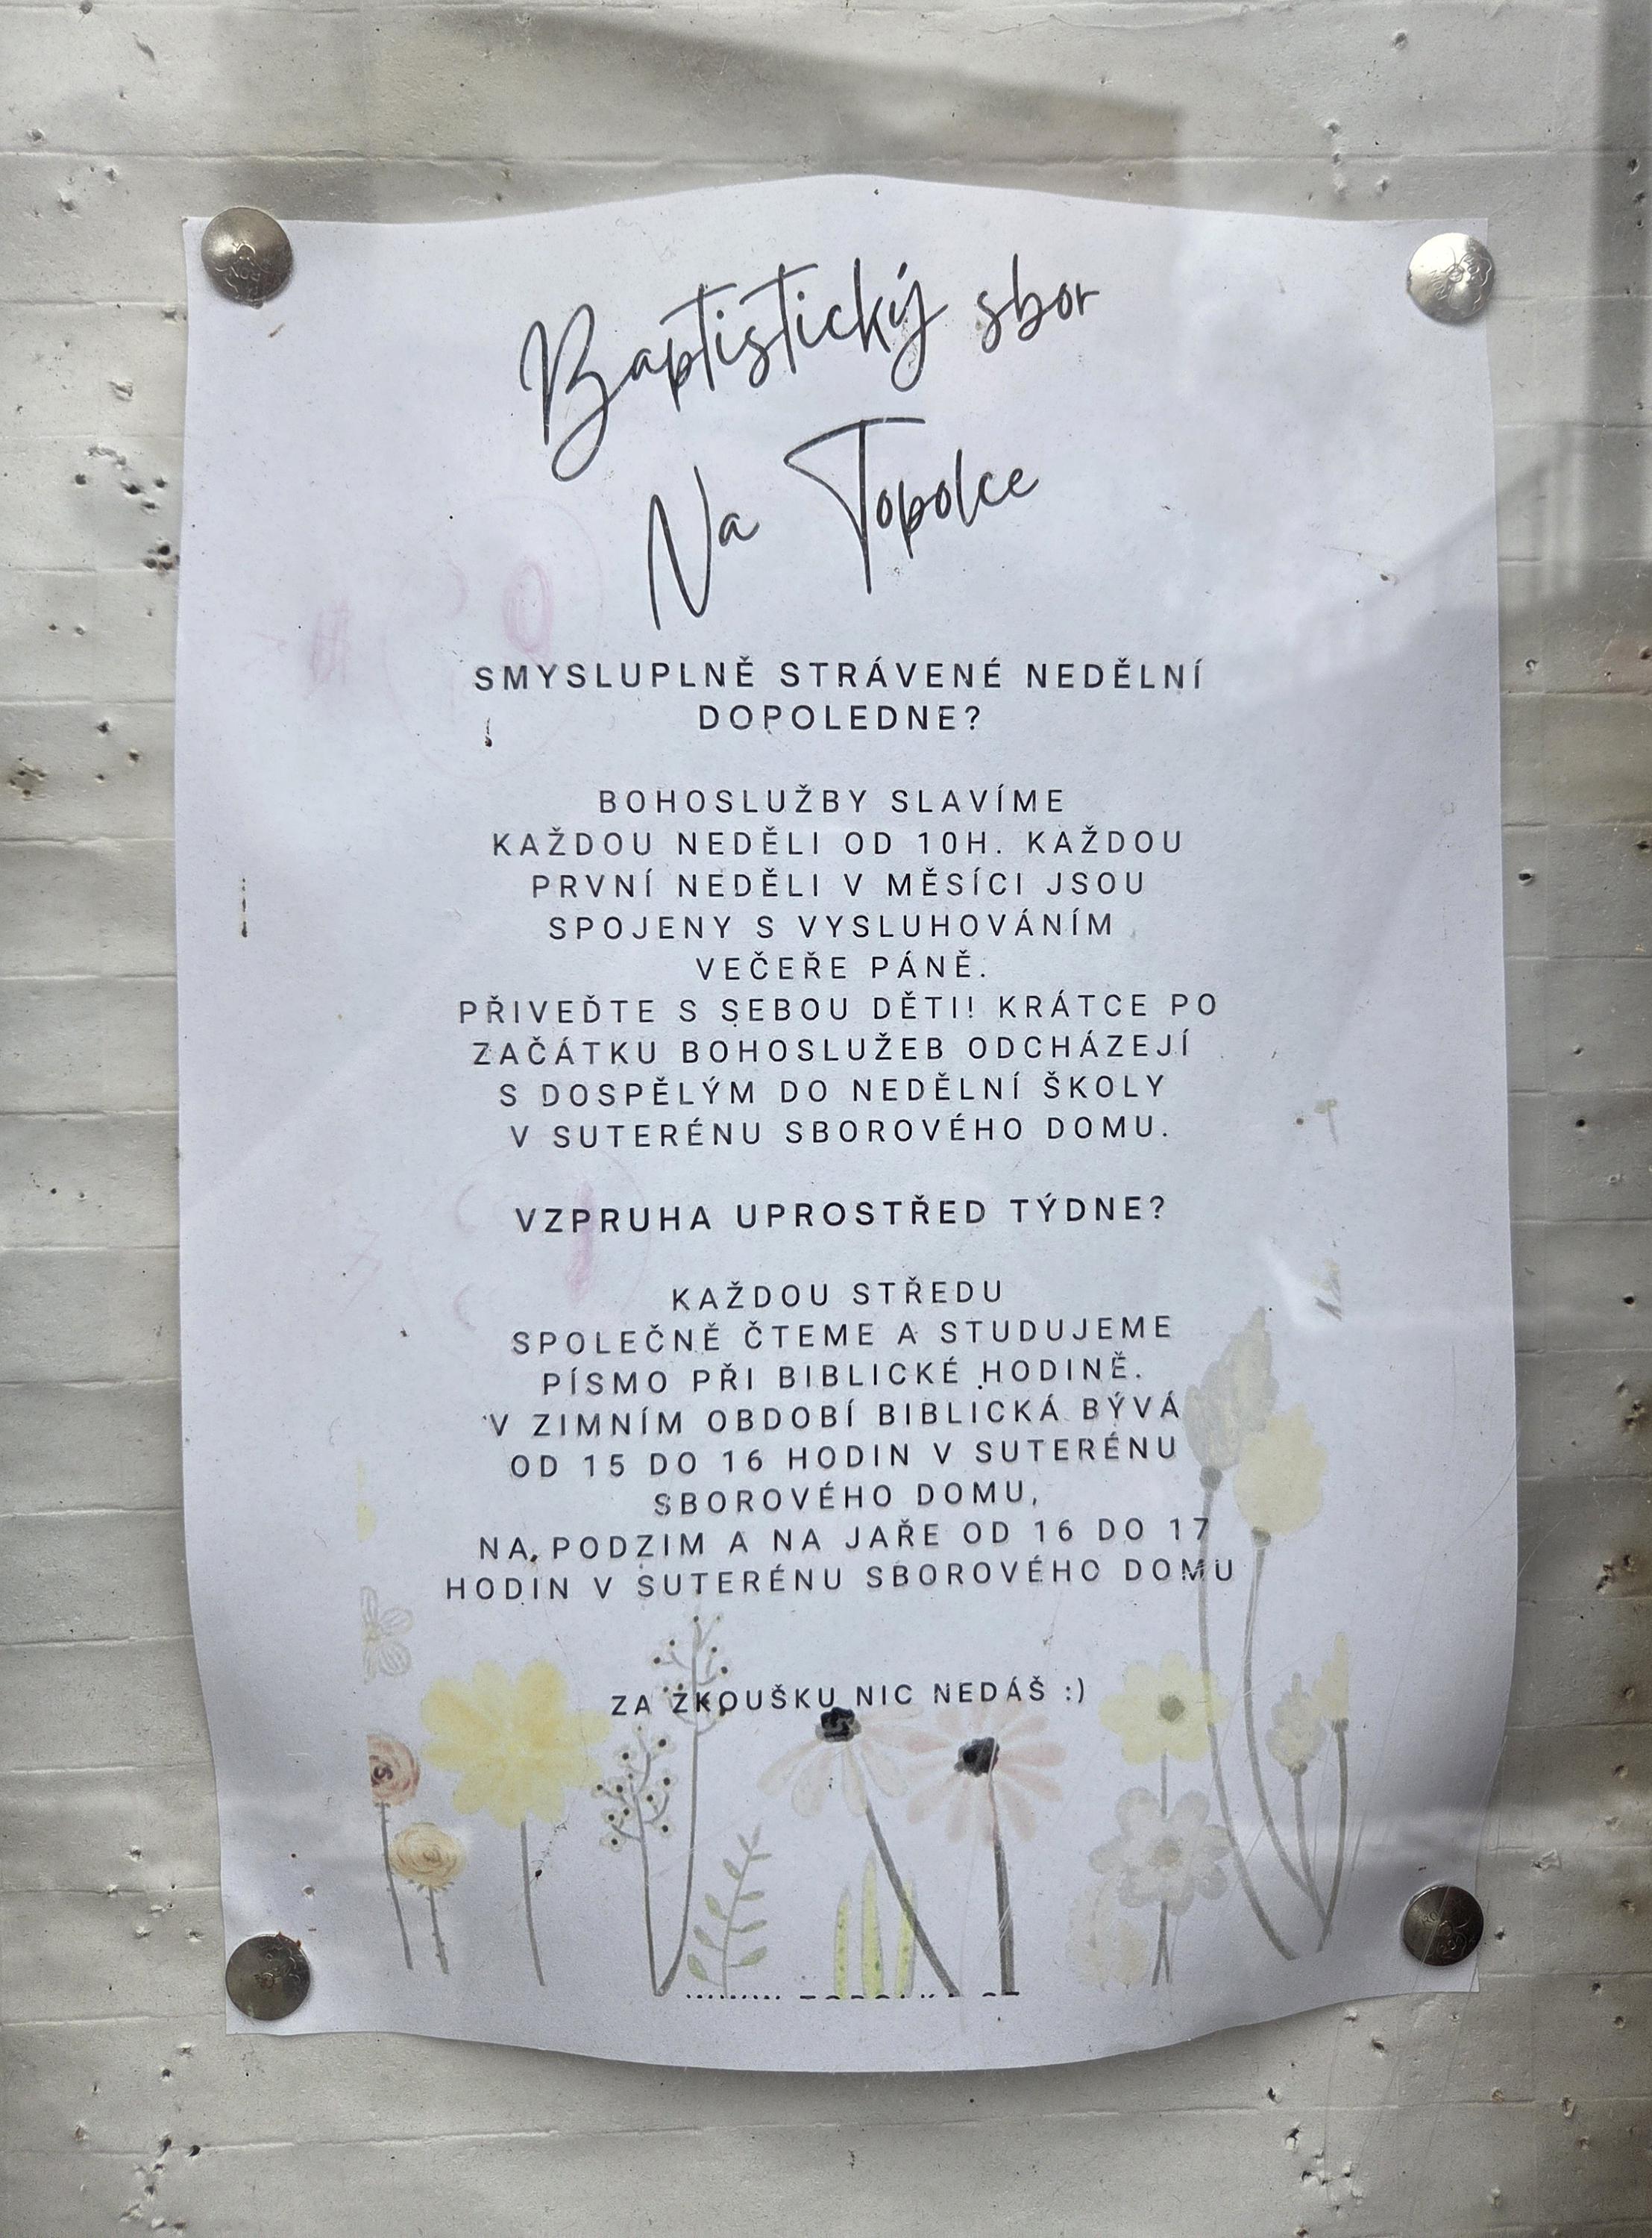 Baptistický sbor
Na Topolce
SMYSLUPLNĚ STRÁVENÉ NEDĚLNÍ
DOPOLEDNE?
BOHOSLUŽBY SLAVÍME
KAŽDOU NEDĚLI OD 10H. KAŽDOU
PRVNÍ NEDĚLI V MĚSÍCI JSOU
SPOJENY S VYSLUHOVÁNÍM
VEČEŘE PÁNĚ.
PŘIVEĎTE S SEBOU DĚTI! KRÁTCE PO
ZAČÁTKU BOHOSLUŽEB ODCHÁZEJÍ
S DOSPĚLÝM DO NEDĚLNÍ ŠKOLY
V SUTERÉNU SBOROVÉHO DOMU.
VZPRUHA UPROSTŘED TÝDNE?
KAŽDOU STŘEDU
SPOLEČNĚ ČTEME A STUDUJEME
PÍSMO PŘI BIBLICKÉ HODINĚ.
V ZIMNÍM OBDOBÍ BIBLICKÁ BÝVÁ
OD 15 DO 16 HODIN V SUTERÉNU
SBOROVÉHO DOMU,
NA PODZIM A NA JAŘE OD 16 DO 17
HODIN V SUTERÉNU SBOROVÉHO DOMU
ZA ZKOUŠKU NIC NEDÁŠ :)